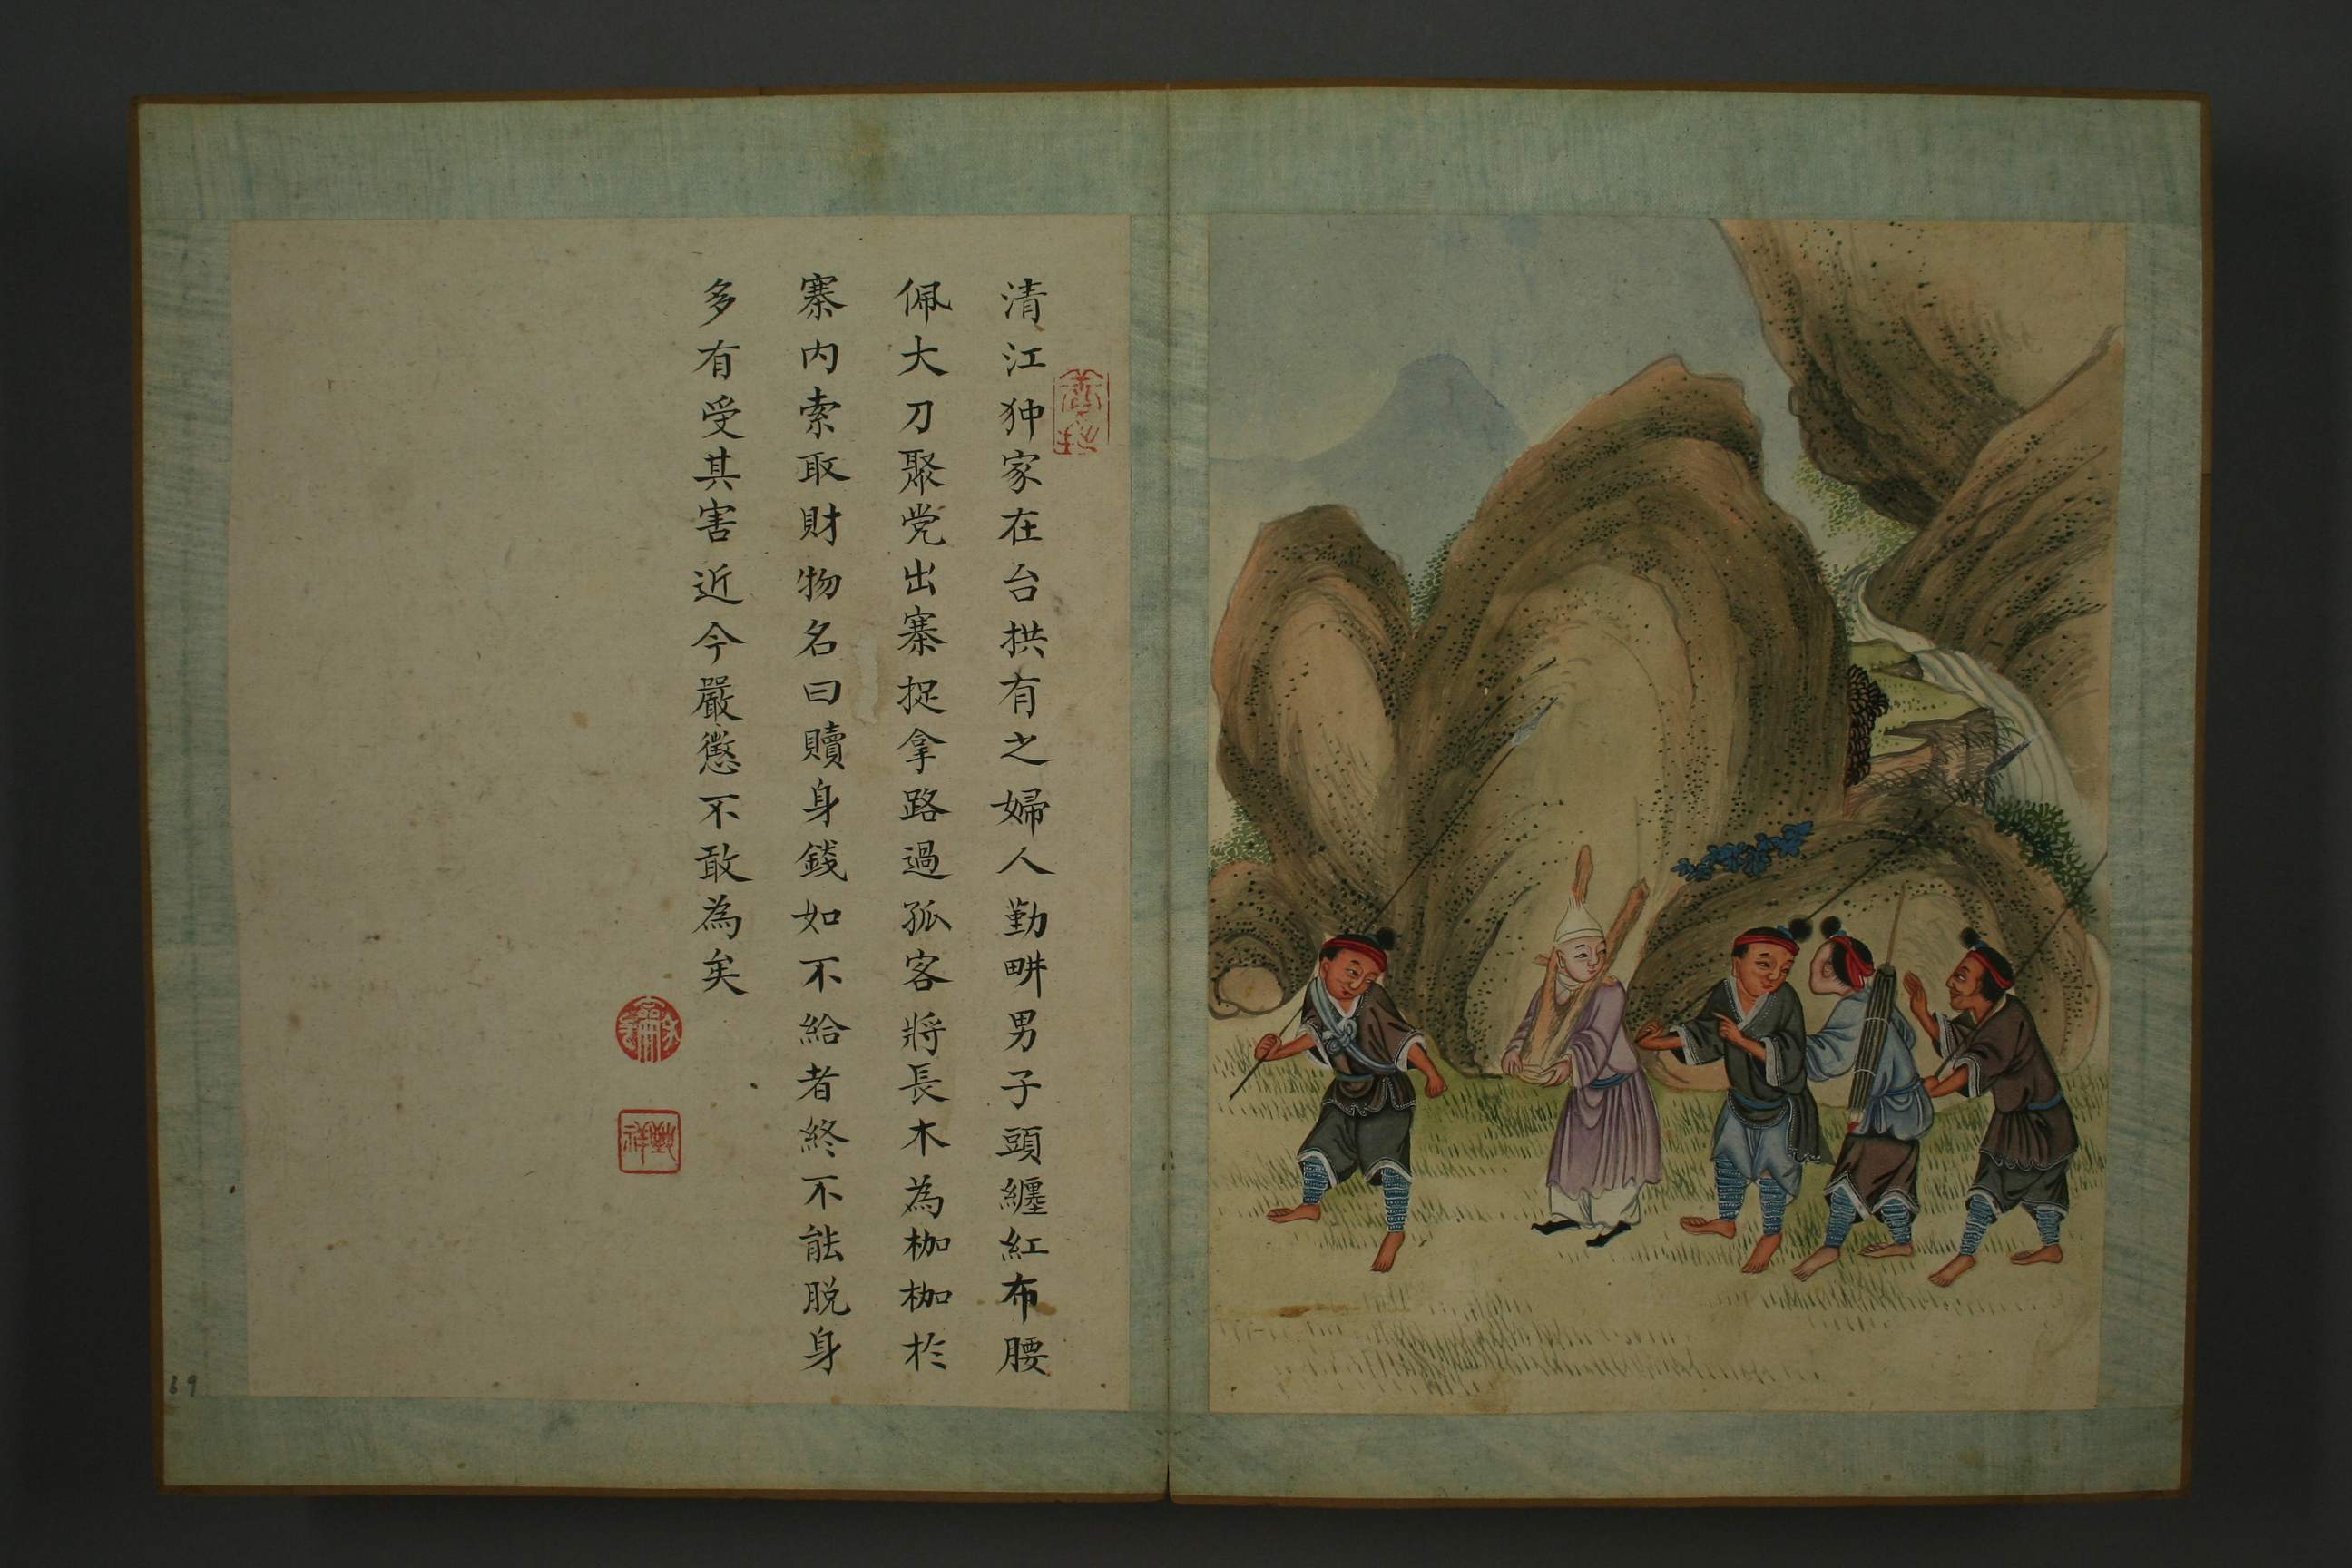 清江狆家在台拱有之婦人勤畊男子頭纏紅布腰
佩大刀聚党出寨捉拿路過孤客將長木為枷枷於
寨内索取財物名曰贖身錢如不給者終不能脱身
多有受其害近今嚴懲不敢為矣
69